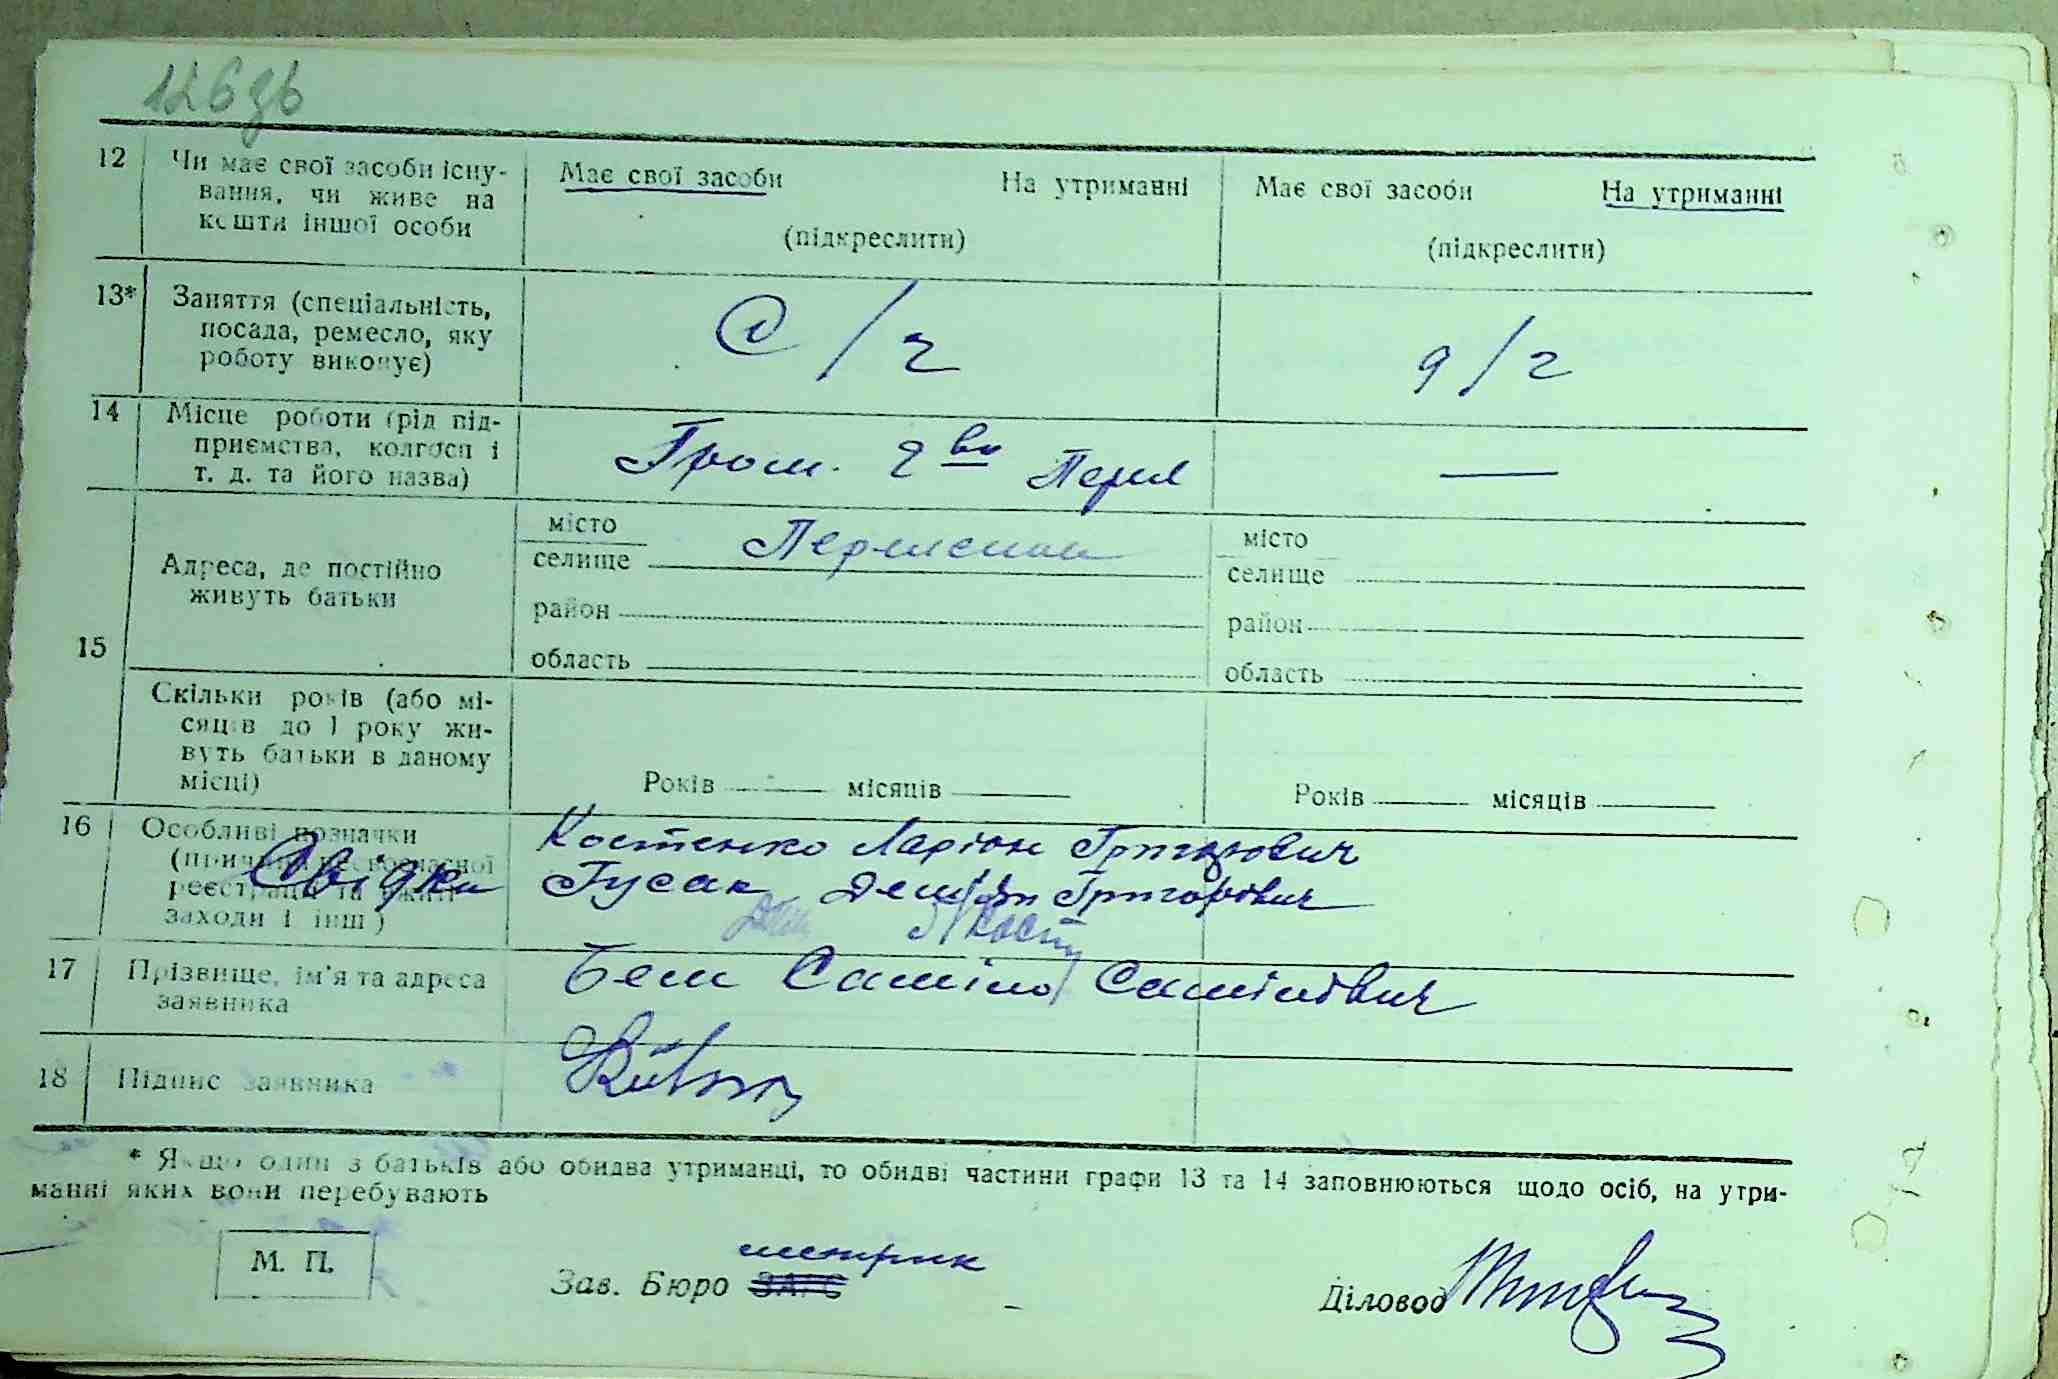 126 зв
12 Чи має свої засоби існу- Має свої засоби На утриманні Має свої засоби На утриманні
вання, чи живе на
кошти іншої особи (підкреслити) (підкреслити)
13* Заняття (спеціальність,
посада, ремесло, яку с/г д/г
роботу виконує)
14 Місце роботи (рід під-
приємства, колгосп і Гром. г ви —
т. д. та його назва)
місто місто
Адреса, де постійно селище селище
живуть батьки район район
15 область область
Скільки років (або мі-
сяців до 1 року жи-
вуть батьки в даному
місці) Років місяців Років місяців
16 Особливі позначки Костенко Ларіон Григорович
(причини несвоєчасної
реєстрації та вжиті Свідки Гусак Демян Григорович
заходи і інш)
17 Прізвище, ім'я та адреса Бем
заявника
18 Підпис заявника
* Якщо один з батьків або обидва утриманці, то обидві частини графи 13 та 14 заповнюються щодо осіб, на утри-
манні яких вони перебувають
М. П.
Зав. Бюро ЗАГС Діловод